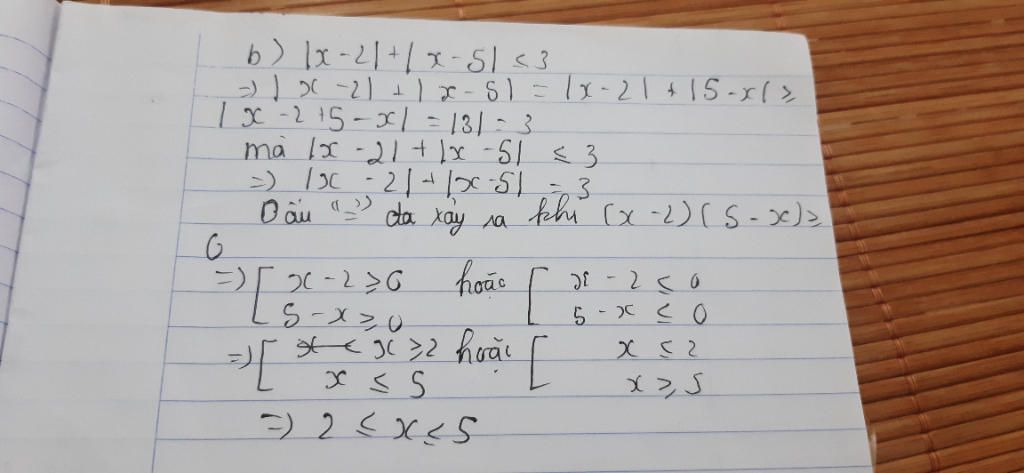 b) |x-2|+|x-5| ≤ 3
=) |x-2| + |x-5| = |x-2| + |5-x| ≥
|x-2+5-x| = |3| = 3
mà |x-2|+|x-5| ≤ 3
=) |x-2|+|x-5| = 3
Dấu "=" đa xảy ra khi (x-2)(5-x) ≥
0
=) [ x-2 ≥ 0 hoặc [ x-2 ≤ 0
5-x ≥ 0 5-x ≤ 0
=) [ x ≥ 2 hoặc [ x ≤ 2
x ≤ 5 x ≥ 5
=) 2 ≤ x ≤ 5